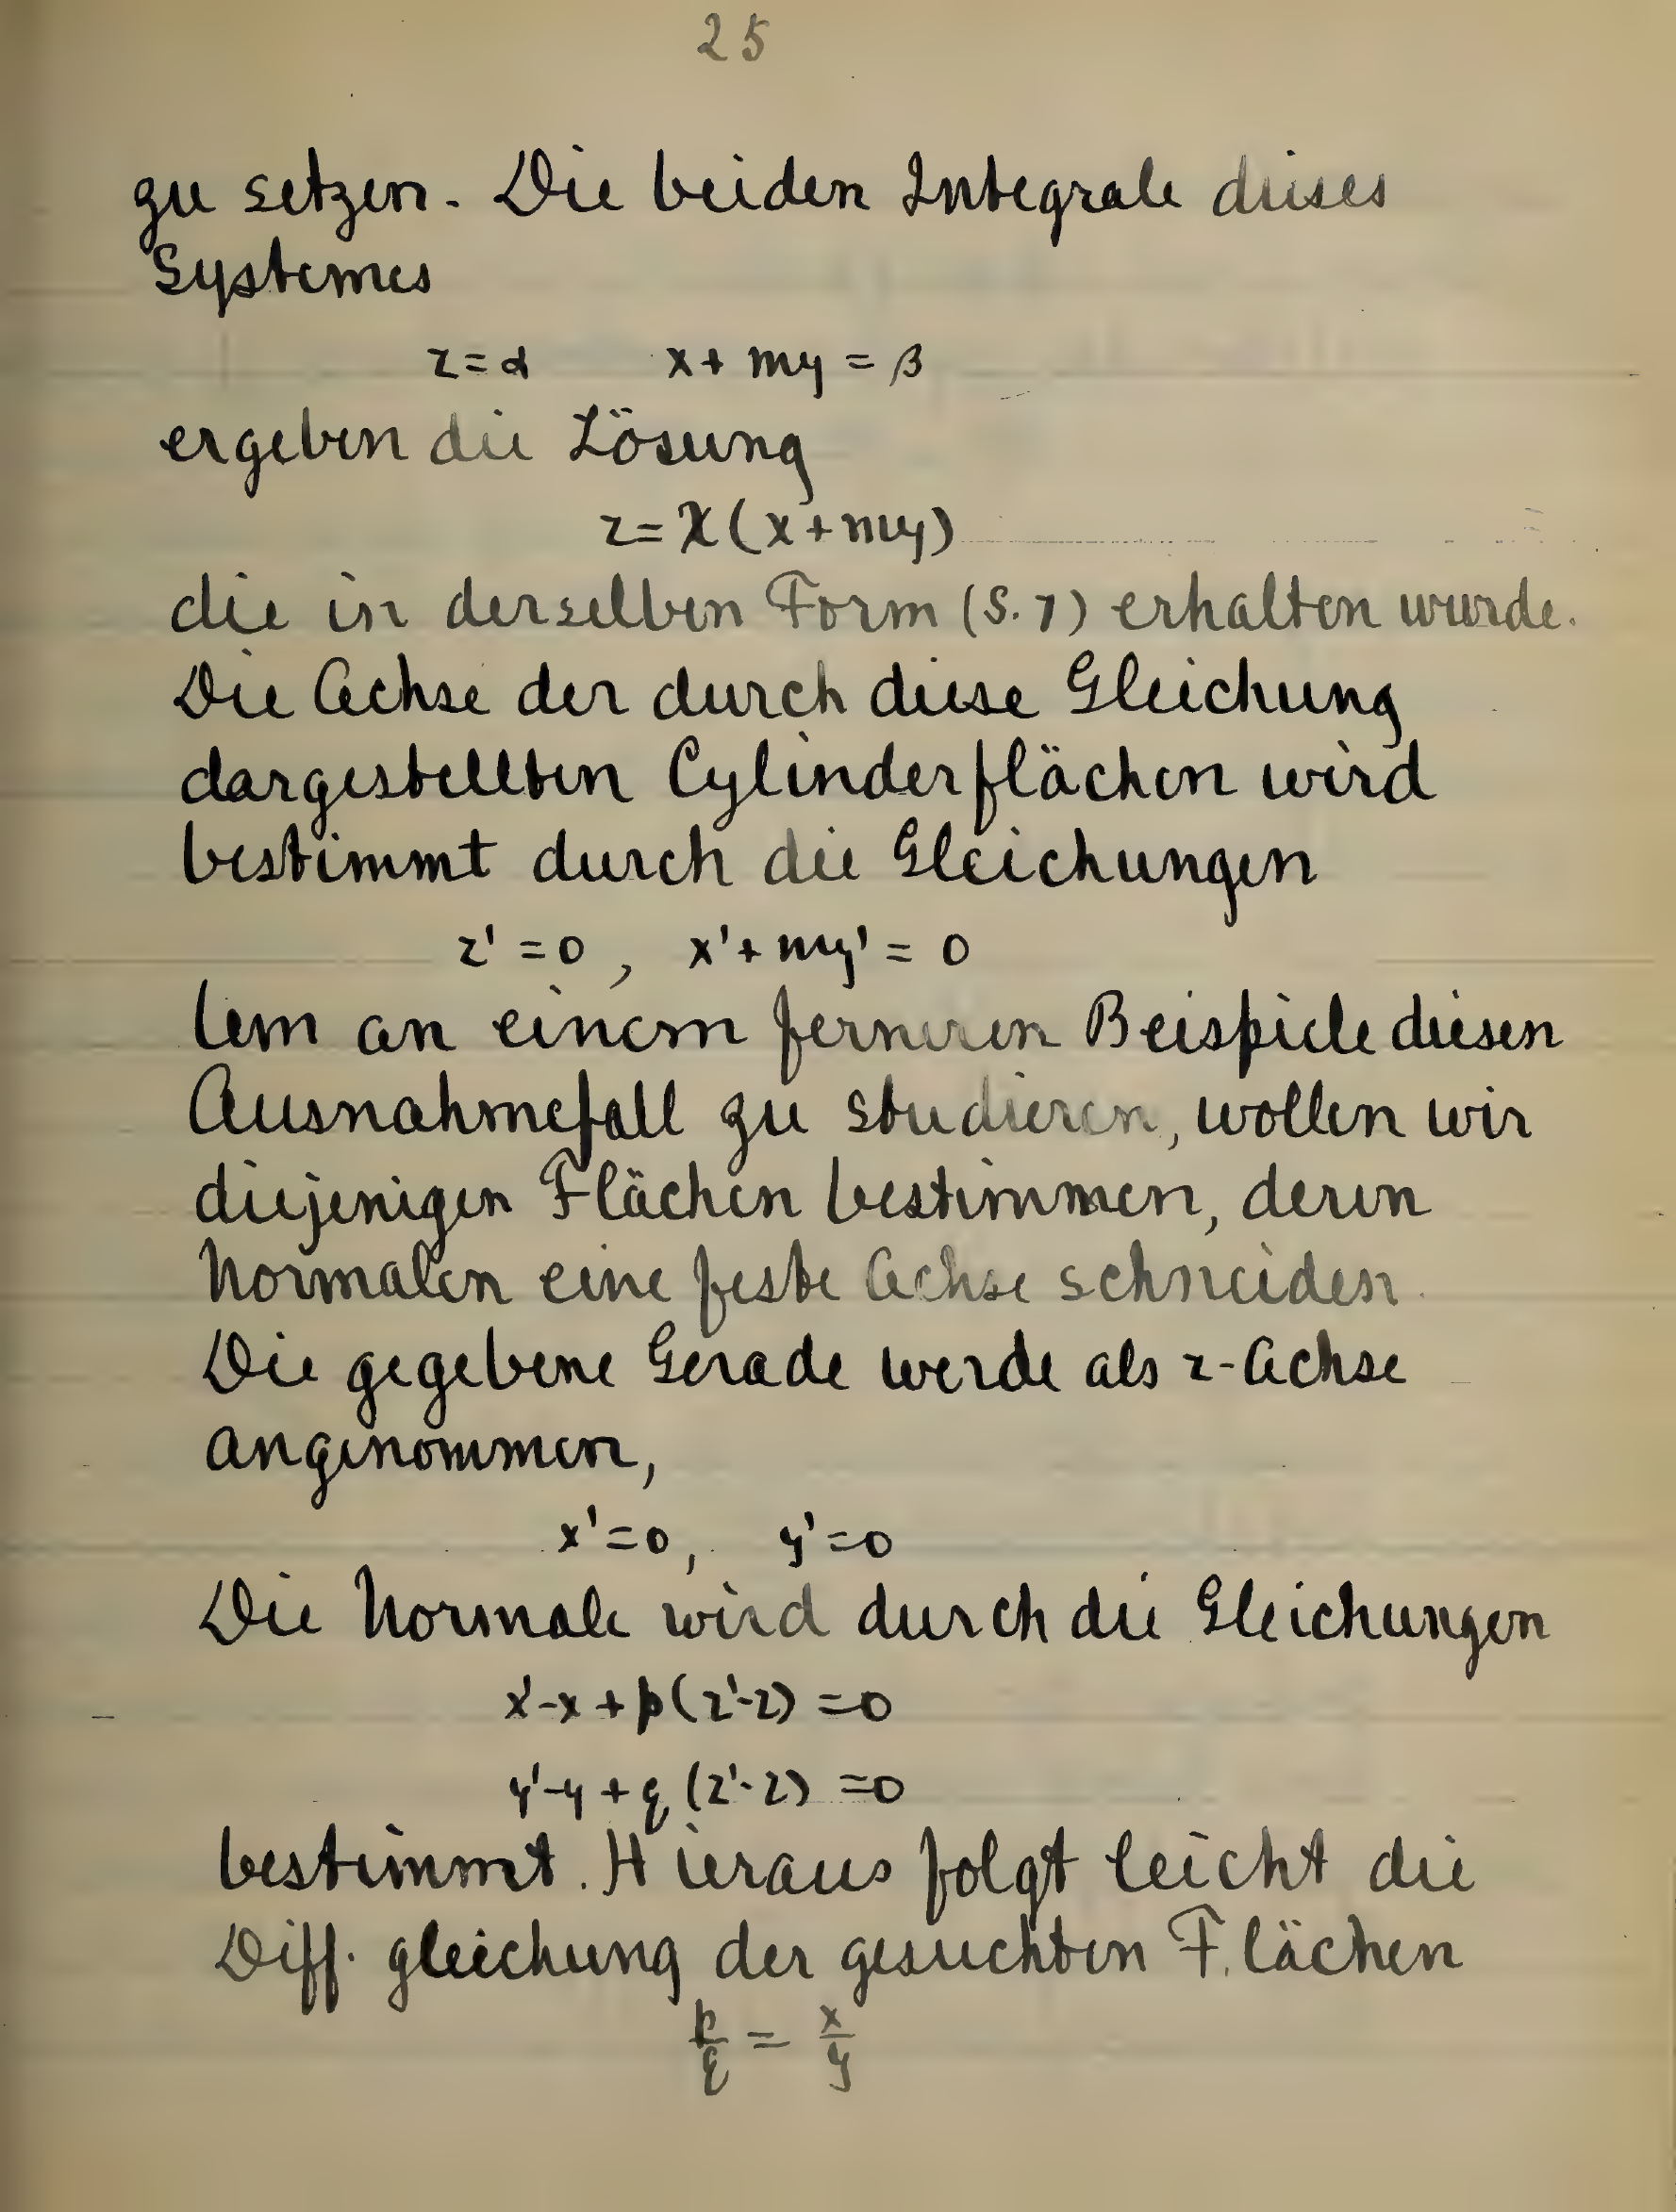 25
zu setzen. Die beiden Integrale dieses
Systemes
z=α x+my=β
ergeben die Lösung
z=χ(x+my)
die in derselben Form (S. 7) erhalten wurde.
Die Achse der durch diese Gleichung
dargestellten Cylinderflächen wird
bestimmt durch die Gleichungen
z'=0, x'+my'=0
Um an einem ferneren Beispiele diesen
Ausnahmefall zu studieren, wollen wir
diejenigen Flächen bestimmen, deren
Normalen eine feste Achse schneiden.
Die gegebene Gerade werde als z-Achse
angenommen,
x'=0, y'=0
Die Normale wird durch die Gleichungen
x'-x+p(z'-z)=0
y'-y+q(z'-z)=0
bestimmt. Hieraus folgt leicht die
Diff. gleichung der gesuchten Flächen
p/q = x/y